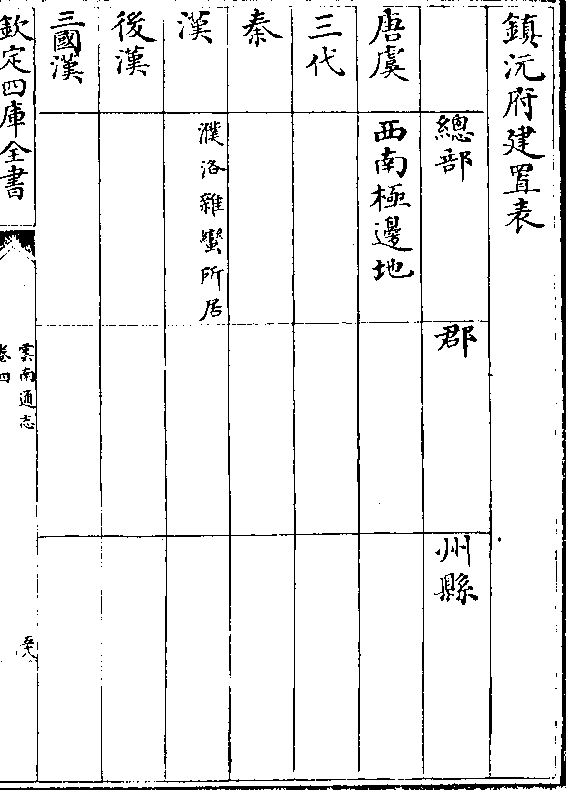 鎮沅府建置表
總部
郡
州縣
唐虞
西南極邊地
三代
秦
漢
濮洛雜蠻所居
後漢
三國漢
欽定四庫全書
雲南通志
卷四